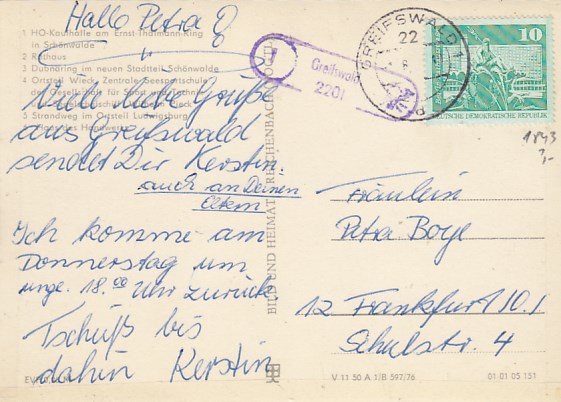 Hallo Petra
1 HO-Kaufhalle am Ernst-Thälmann-Ring
in Schönwalde
2 Rathaus
3 Dubnaring im neuen Stadtteil Schönwalde
4 Ortsteil Wieck, Zentrale Seesportschule
der Gesellschaft für Sport und Technik
5 Strandweg im Ortsteil Ludwigsburg
Viele liebe Grüße
aus Greifswald
sendet Dir Kerstin.
auch an Deinen
Eltern
Ich komme am
Donnerstag um
unge. 18.00 Uhr zurück
Tschüß bis
dahin Kerstin
BILD UND HEIMAT REICHENBACH
Greifswald
2201
GREIFSWALD 1
22
10
DEUTSCHE DEMOKRATISCHE REPUBLIK
1843
7,-
Fräulein
Petra Boye
12 Frankfurt 10.1
Schulstr. 4
V 11 50 A 1 B 597/76
01 01 05 151